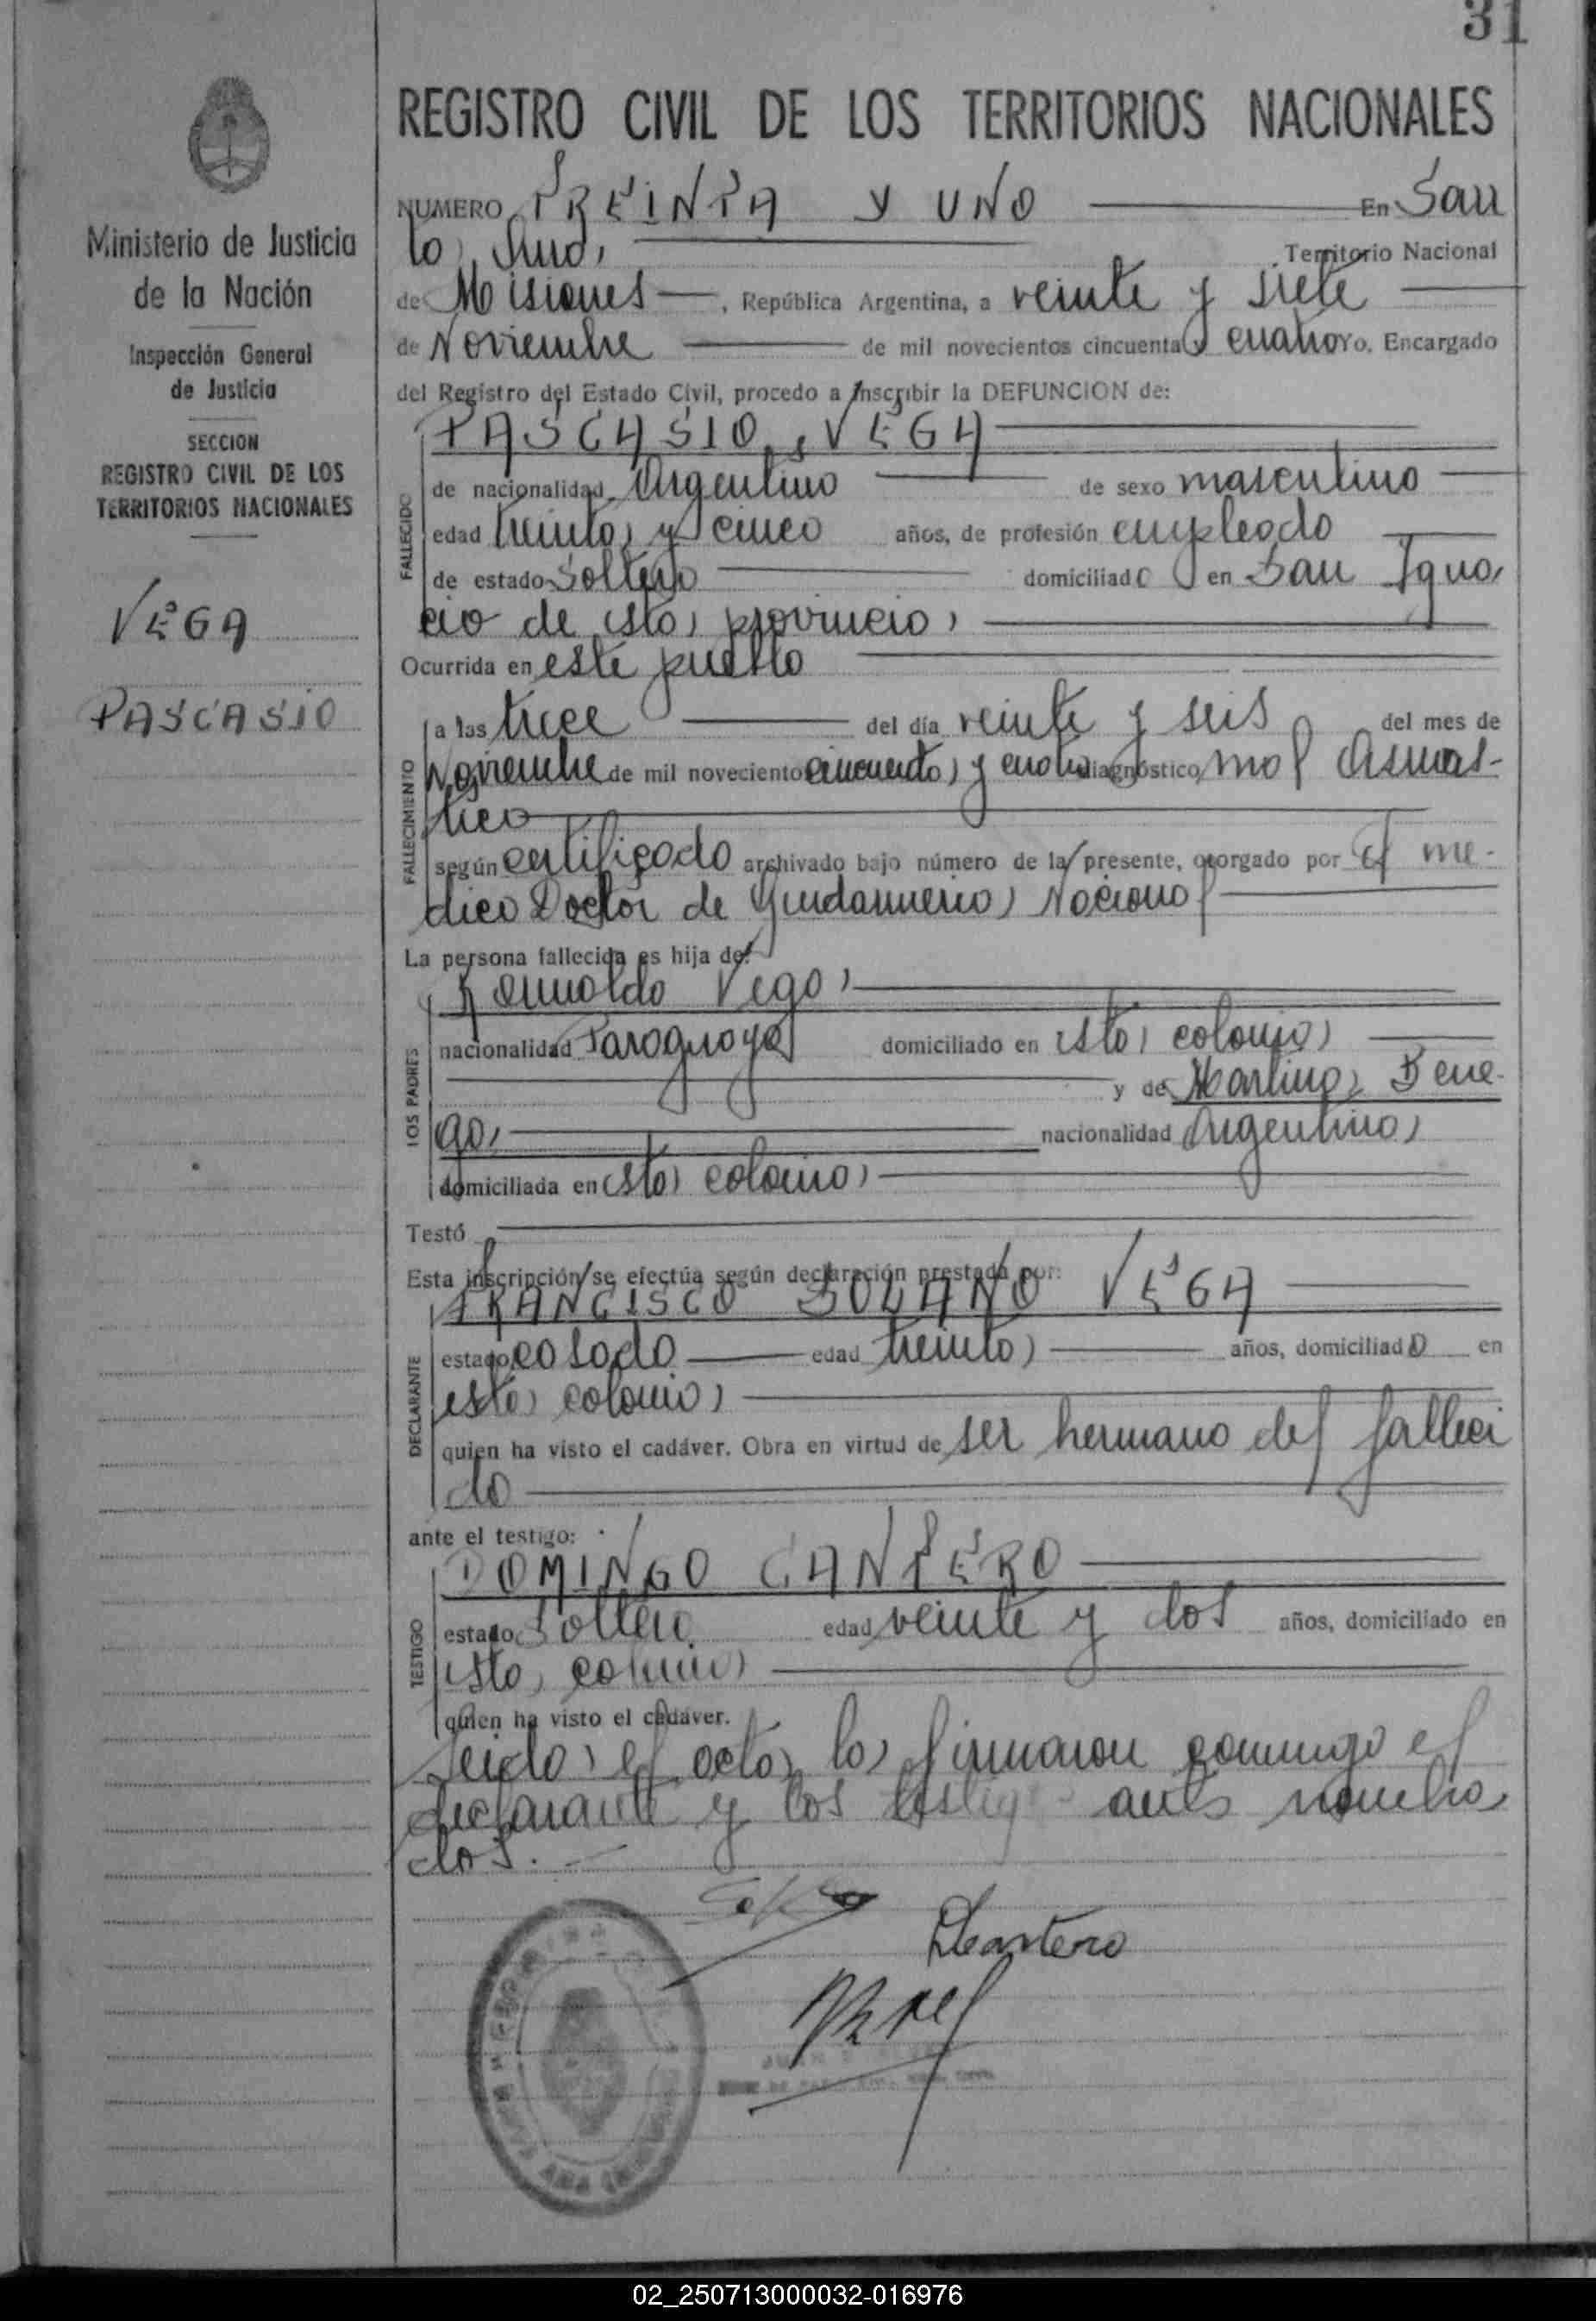 31
REGISTRO CIVIL DE LOS TERRITORIOS NACIONALES
Ministerio de Justicia
de la Nación
Inspección General
de Justicia
SECCION
REGISTRO CIVIL DE LOS
TERRITORIOS NACIONALES
VEGA
PASCASIO
NUMERO TREINTA Y UNO En San
ta Ana, Territorio Nacional
de Misiones, República Argentina, a veinte y siete
de Noviembre de mil novecientos cincuenta y cuatro Yo. Encargado
del Registro del Estado Civil, procedo a inscribir la DEFUNCION de:
PASCASIO, VEGA
FALLECIDO
de nacionalidad Argentino de sexo masculino
edad treinta y cinco años, de profesión empleado
de estado Soltero domiciliado en San Igna
cio de esta provincia
Ocurrida en este pueblo
FALLECIMIENTO
a las trece del día veinte y seis del mes de
Noviembre de mil novecientos cincuenta y cuatro diagnóstico mal Asmas-
tico
según certificado archivado bajo número de la presente, otorgado por el me-
dico Doctor de Gendarmeria Nacional
La persona fallecida es hija de:
Romualdo Vega
LOS PADRES
nacionalidad Paraguaya domiciliado en esta colonia
y de Martina Bene-
ga, nacionalidad Argentina
domiciliada en esta colonia
Testó
Esta inscripción se efectúa según declaración prestada por:
FRANCISCO SOLANO VEGA
DECLARANTE
estado casado edad treinta años, domiciliado en
esta colonia
quien ha visto el cadáver. Obra en virtud de ser hermano del falleci
do
ante el testigo:
DOMINGO CANTERO
TESTIGO
estado Soltero edad veinte y dos años, domiciliado en
esta colonia
quien ha visto el cadáver.
Leida el acta la firmaron conmigo el
declarante y los testigo antes nombra
dos.
DCantero